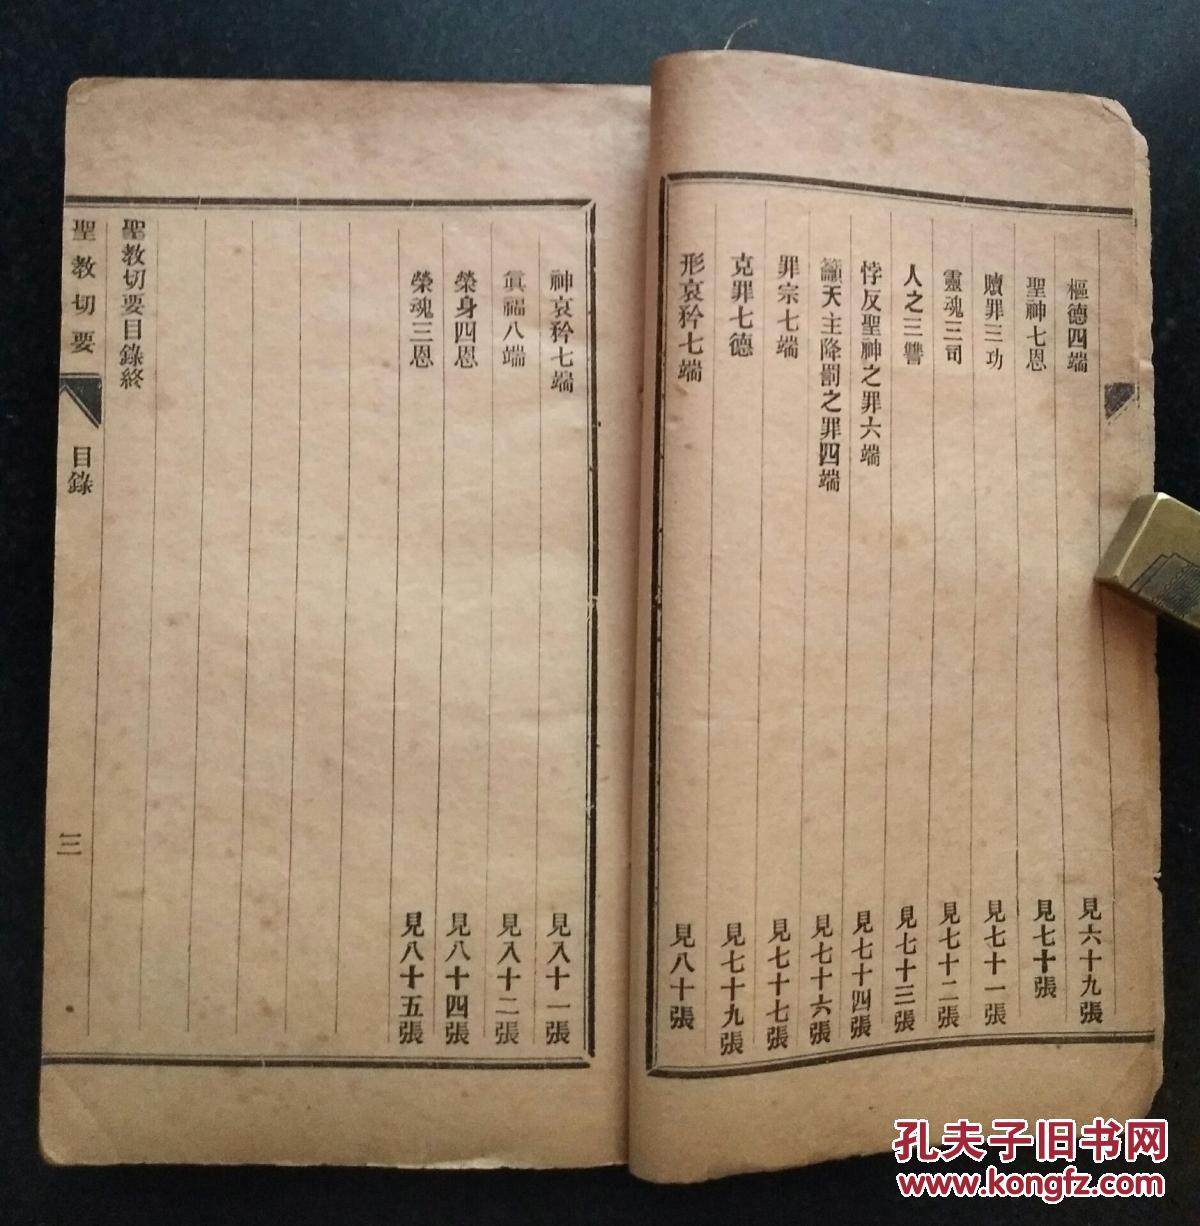 樞德四端 見六十九張
聖神七恩 見七十張
贖罪三功 見七十一張
靈魂三司 見七十二張
人之三讐 見七十三張
悖反聖神之罪六端 見七十四張
籲天主降罰之罪四端 見七十六張
罪宗七端 見七十七張
克罪七德 見七十九張
形哀矜七端 見八十張
神哀矜七端 見八十一張
眞福八端 見八十二張
榮身四恩 見八十四張
榮魂三恩 見八十五張
聖教切要目錄終
聖教切要 目錄 三
孔夫子旧书网
www.kongfz.com